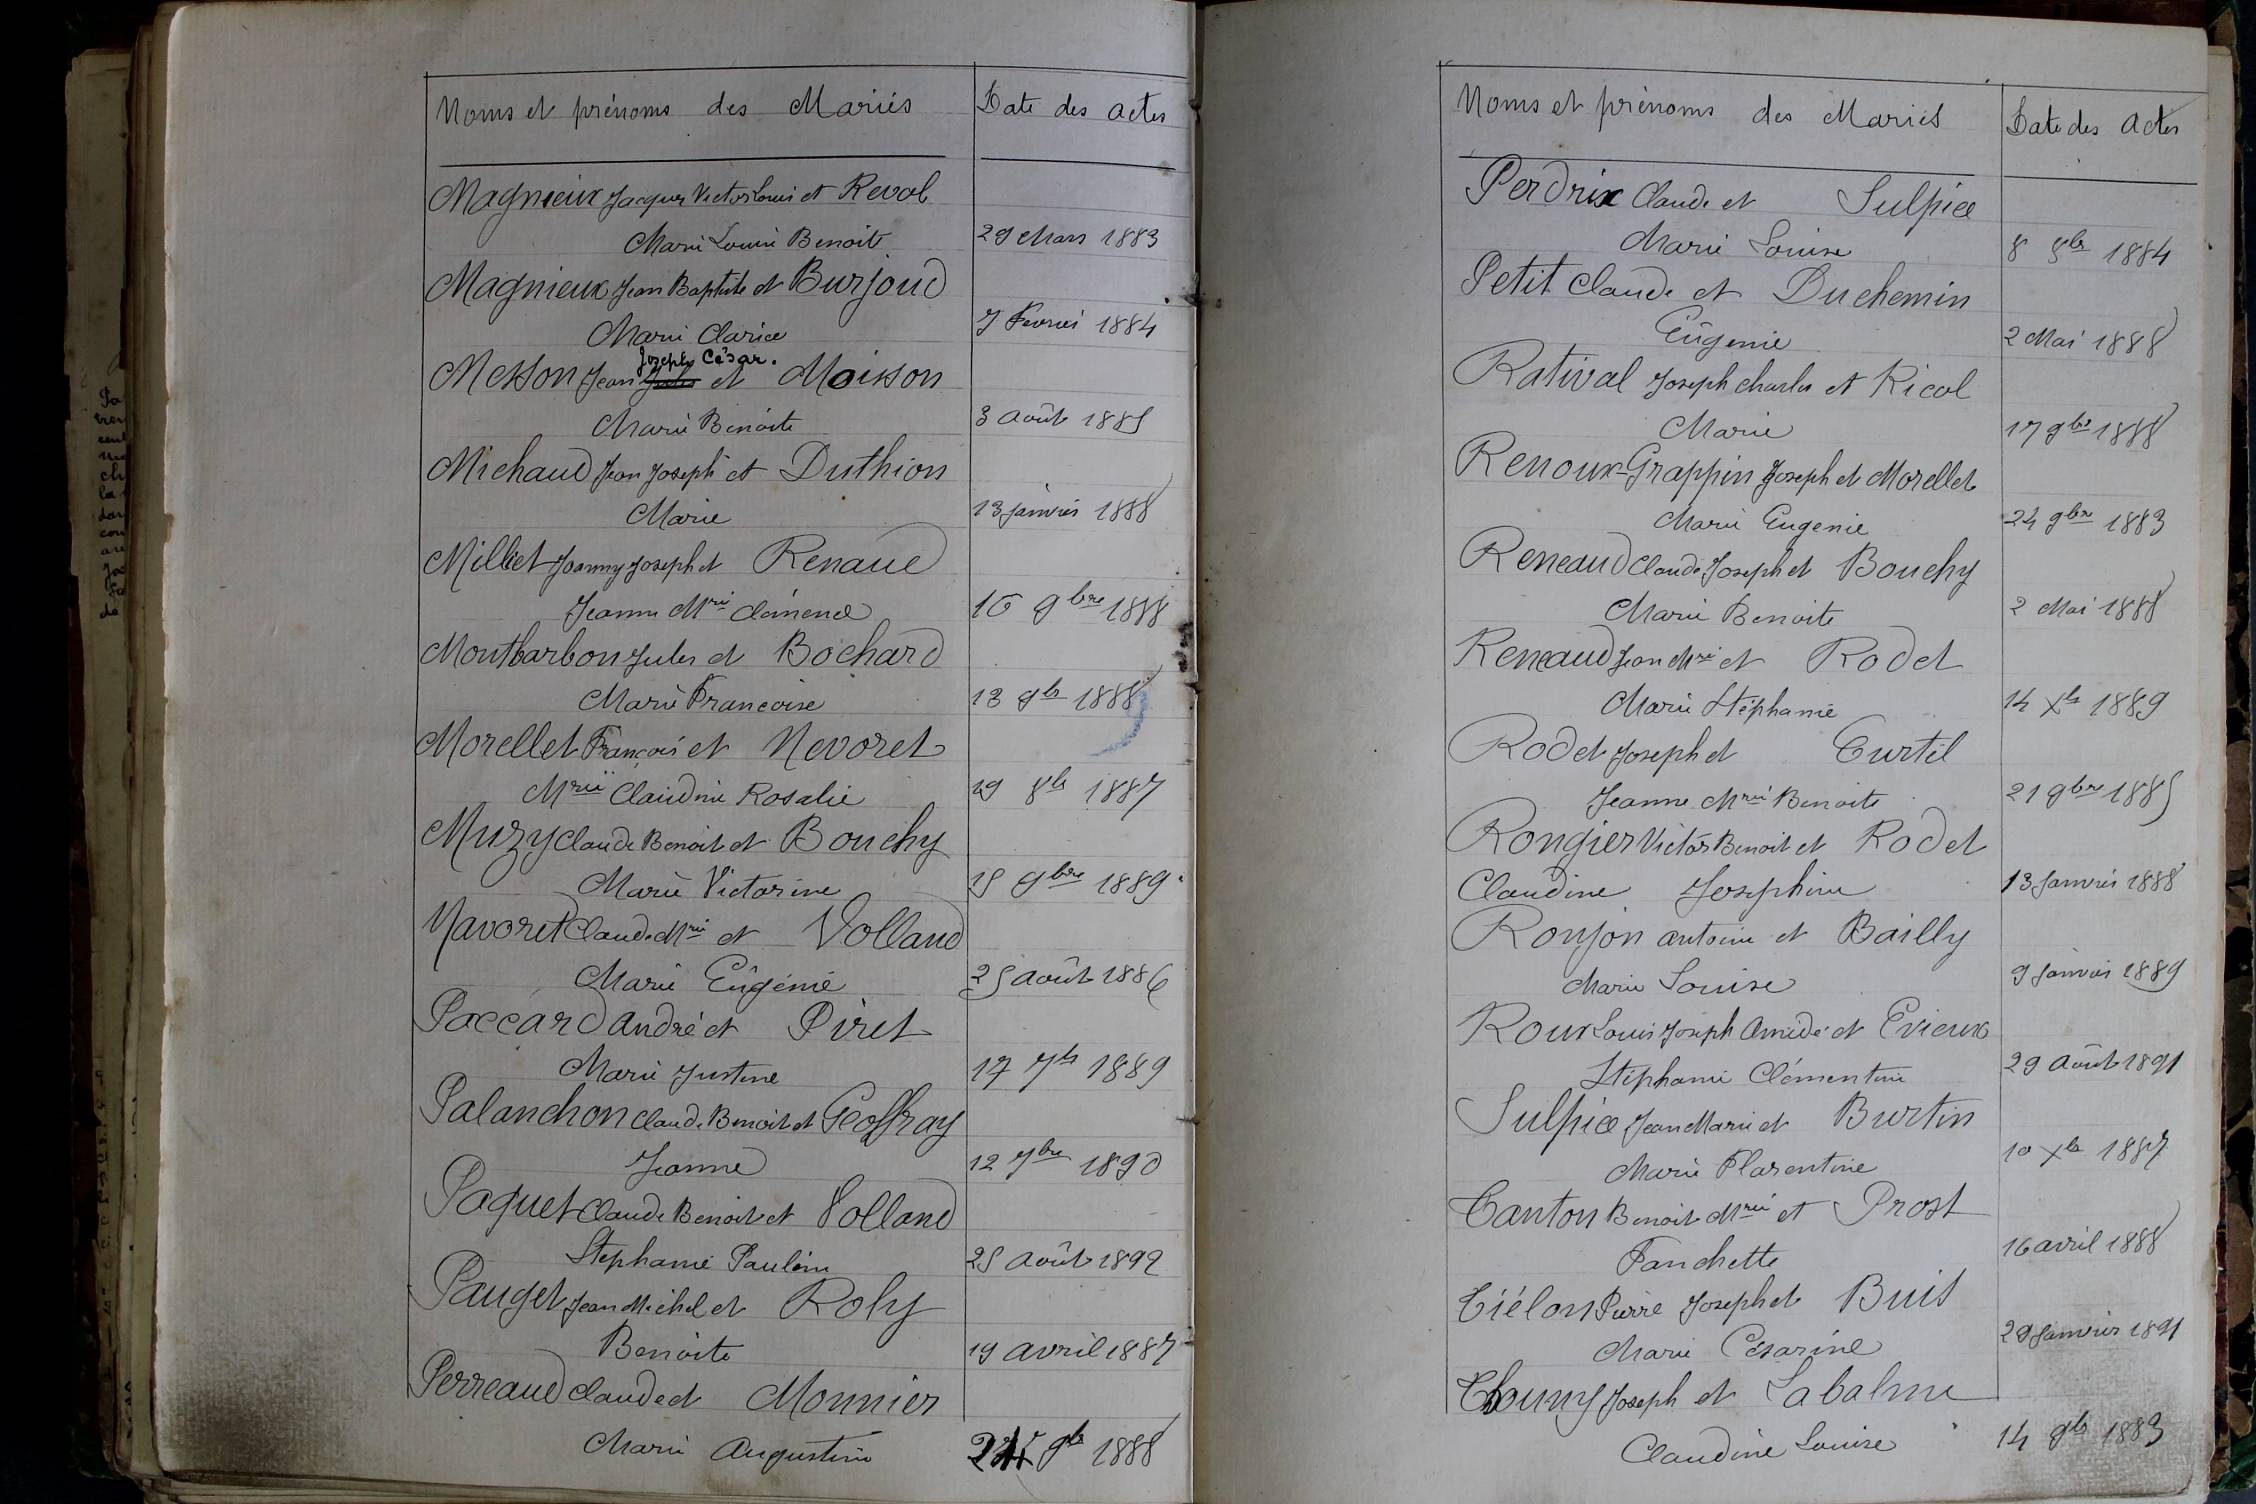 Noms et prénoms des Mariés
Date des actes
Magnieux Jacques Victor Louis et Revol
Marie Louise Benoite
29 Mars 1883
Magnieux Jean Baptiste et Burjoud
Marie Clarice
7 Février 1884
Joseph César.
Messon Jean Jules et Moisson
Marie Benoite
3 Août 1885
Michaud Jean Joseph et Duthion
Marie
13 janvier 1888
Milliet Joanny Joseph et Renaud
Jeanne Mrie Clémence
16 9bre 1888
Montbarbon Jules et Bochard
Marie Francoise
13 9bre 1888
Morellet François et Nevoret
Mrie Claudine Rosalie
29 8bre 1887
Muzy Claude Benoit et Bouchy
Marie Victorine
15 9bre 1889
Navoret Claude Mrie et Volland
Marie Eugénie
25 août 1886
Paccard André et Piret
Marie Justine
17 7bre 1889
Palanchon Claude Benoit et Geoffray
Jeanne
12 7bre 1890
Paquet Claude Benoit et Volland
Stephanie Pauline
25 Août 1892
Pauget Jean Michel et Roly
Benoite
19 avril 1887
Perreaud Claude et Monnier
Marie Augustine
9bre 1888
Noms et prénoms des Mariés
Date des Actes
Perdrix Claude et Sulpice
Marie Louise
8 8bre 1884
Petit Claude et Duchemin
Eugenie
2 Mai 1888
Ratival Joseph Charles et Ricol
Marie
17 9bre 1888
Renoux-Grappin Joseph et Morellet
Marie Eugenie
24 9bre 1883
Reneaud Claude Joseph et Bouchy
Marie Benoite
2 Mai 1888
Reneaud Jean Mrie et Rodet
Marie Stéphanie
14 Xbre 1889
Rodet Joseph et Curtil
Jeanne Mrie Benoite
21 9bre 1885
Rongier Victor Benoit et Rodet
Claudine Josephine
13 Janvier 1888
Roujon antoine et Bailly
Marie Louise
9 Janvier 1889
Roux Louis Joseph Amédé et Evieux
Stéphanie Clémentine
29 Août 1891
Sulpice Jean Marie et Burtin
Marie Florentine
10 Xbre 1887
Tanton Benoit Mrie et Prost
Fanchette
16 avril 1888
Tiélon Pierre Joseph et Buis
Marie Césarine
29 Janvier 1891
Thuny Joseph et Labalme
Claudine Louise
14 9bre 1883